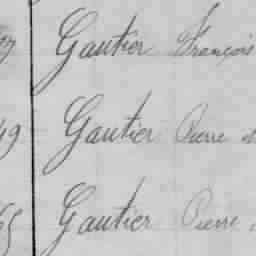 Gautier François
49 Gautier Pierre
65 Gautier Pierre